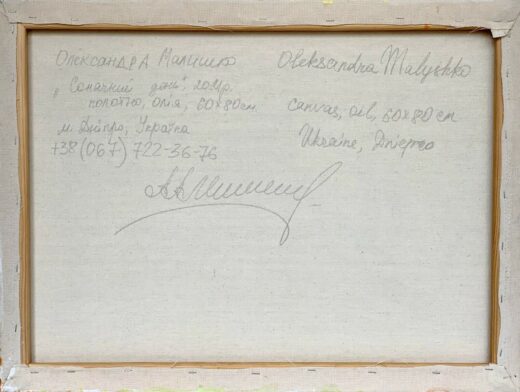 Олександра Малишко
„Сонячний день" 2021р.
полотно, олія, 60×80см
м. Дніпро, Україна
+38(067) 722-36-76
Oleksandra Malyshko
canvas, oil, 60×80 cm
Ukraine, Dniepro